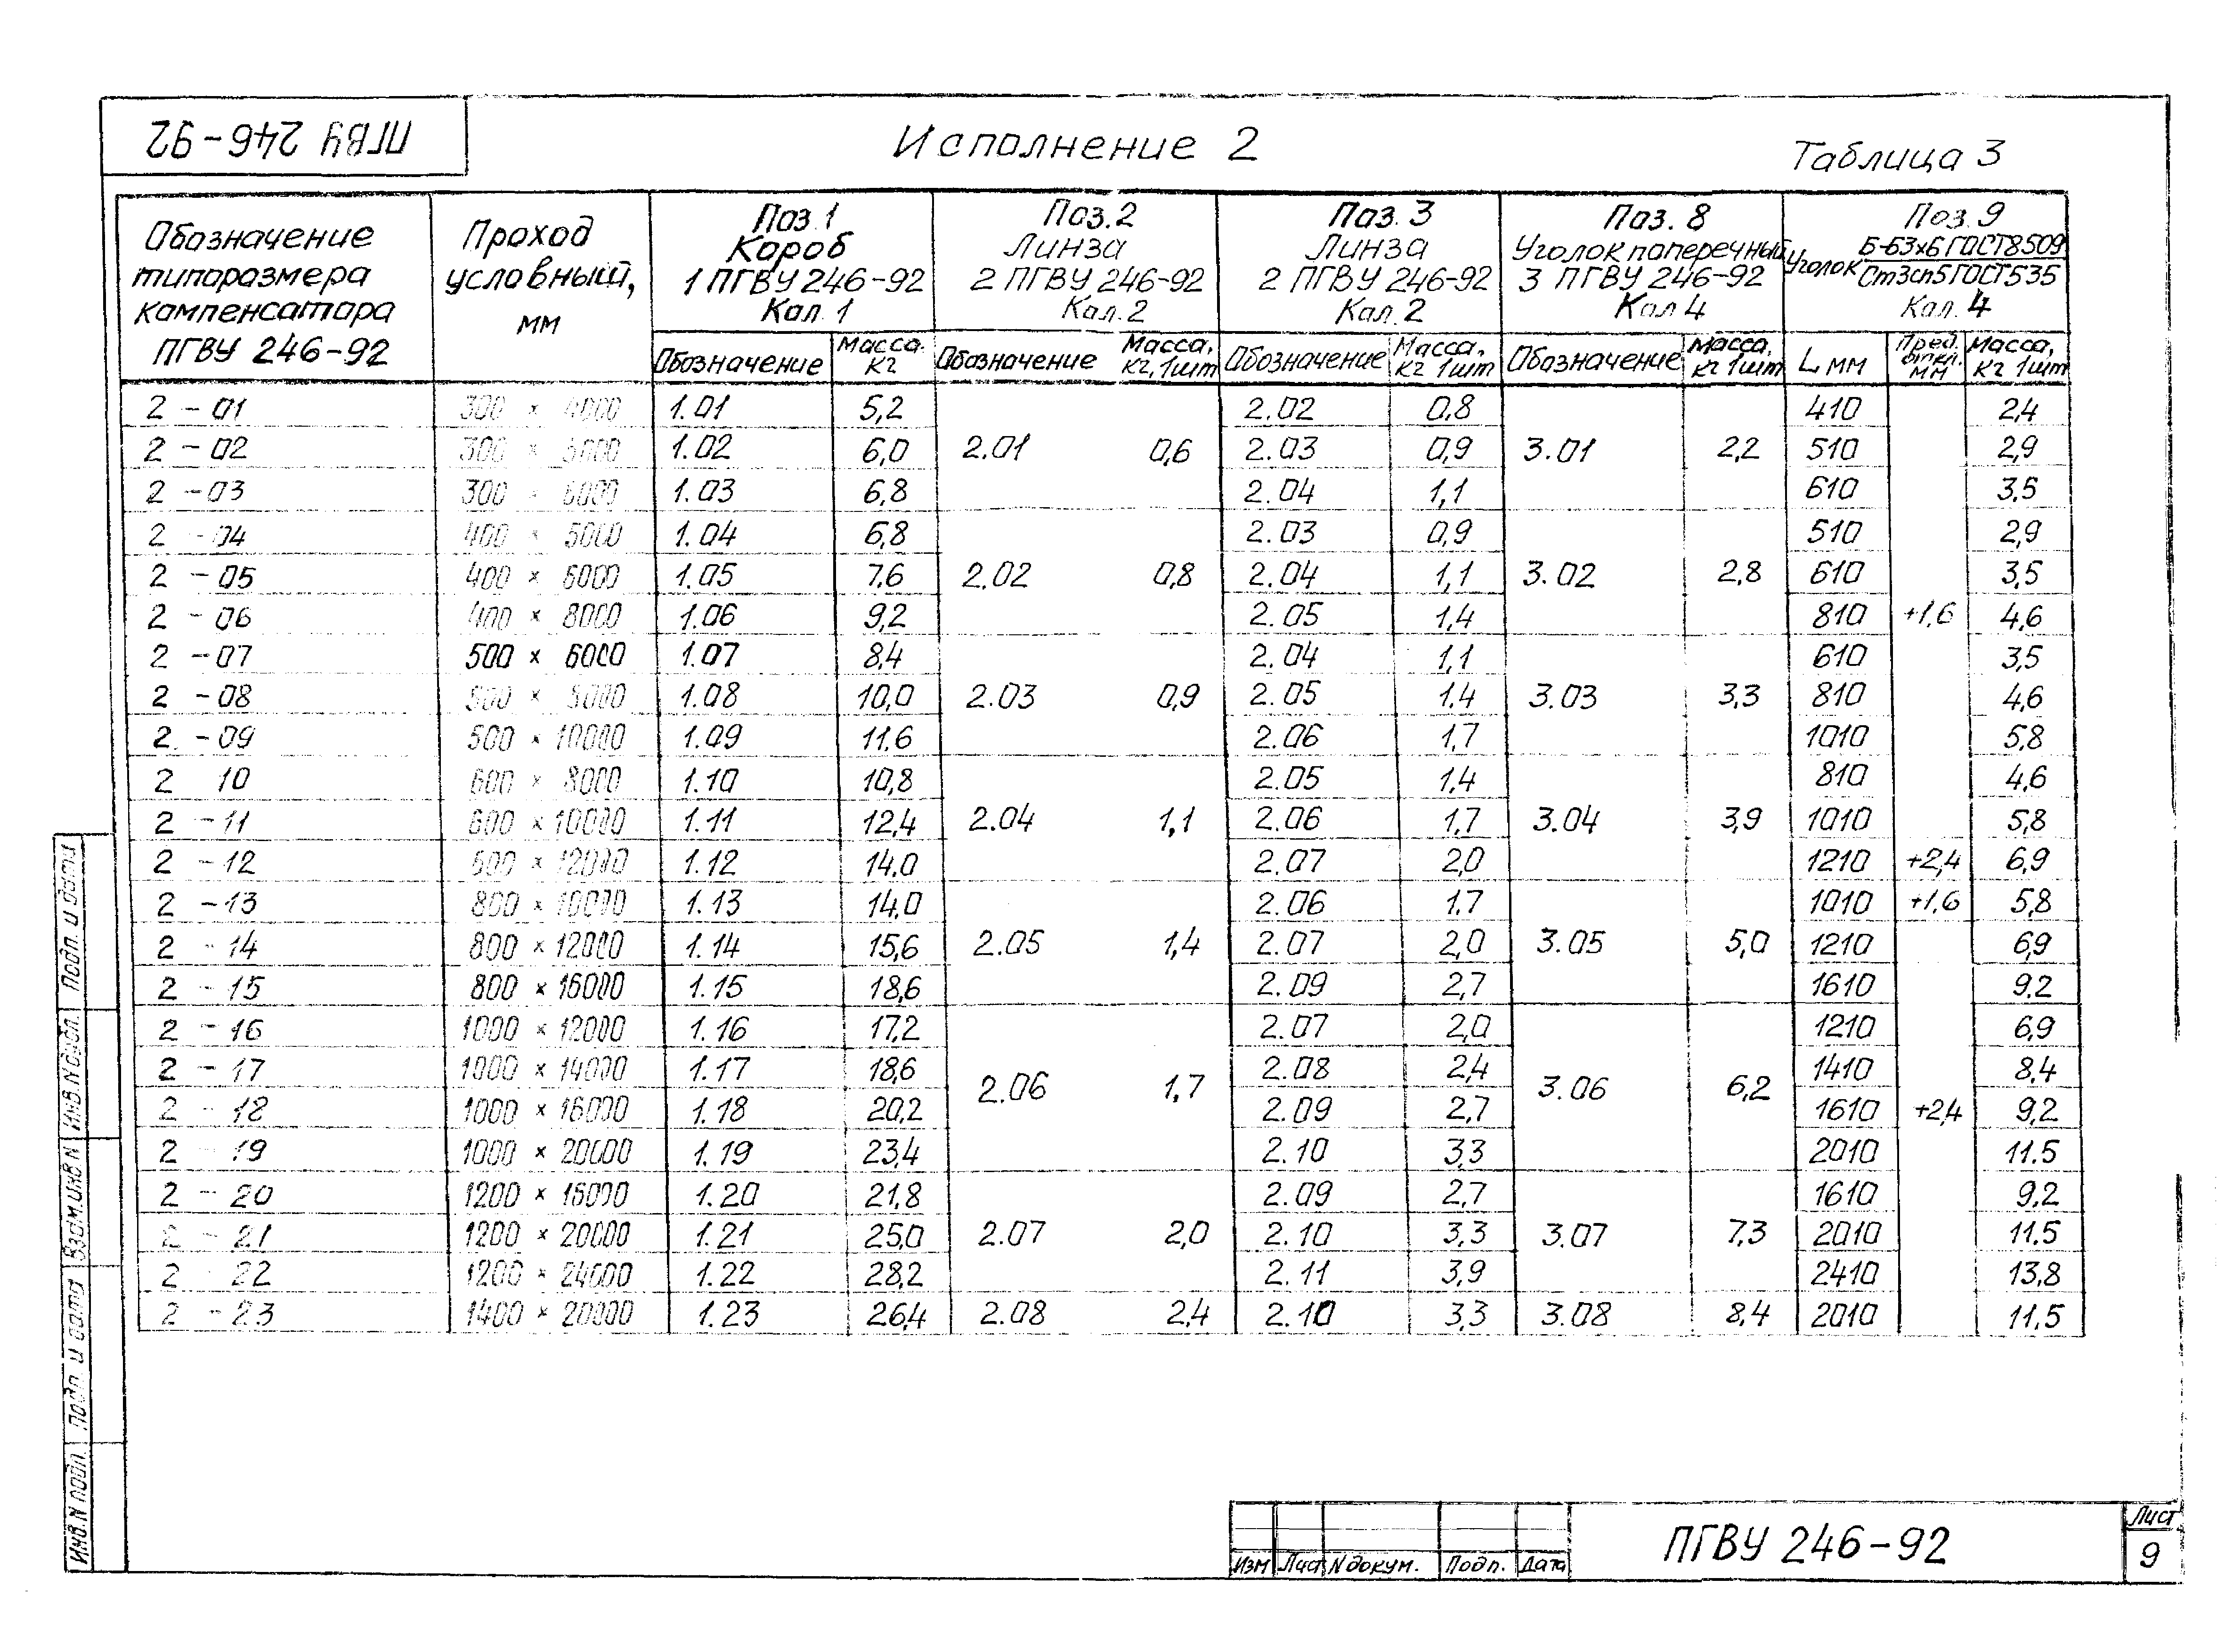 ПГВУ 246-92
Исполнение 2
Таблица 3
Обозначение типоразмера компенсатора ПГВУ 246-92
Проход условный, мм
Поз. 1 Короб 1 ПГВУ 246-92 Кол. 1
Поз. 2 Линза 2 ПГВУ 246-92 Кол. 2
Поз. 3 Линза 2 ПГВУ 246-92 Кол. 2
Поз. 8 Уголок поперечный 3 ПГВУ 246-92 Кол 4
Поз. 9 Уголок Б-63х6 ГОСТ8509 Ст3сп5 ГОСТ535 Кол. 4
Обозначение Масса. кг Обозначение Масса, кг, 1шт Обозначение Масса, кг 1шт Обозначение Масса, кг 1шт L мм Пред. откл. мм Масса, кг 1шт
2 - 01 300 × 4000 1.01 5,2 2.02 0,8 410 2,4
2 - 02 300 × 5000 1.02 6,0 2.01 0,6 2.03 0,9 3.01 2,2 510 2,9
2 - 03 300 × 6000 1.03 6,8 2.04 1,1 610 3,5
2 - 04 400 × 5000 1.04 6,8 2.03 0,9 510 2,9
2 - 05 400 × 6000 1.05 7,6 2.02 0,8 2.04 1,1 3.02 2,8 610 3,5
2 - 06 400 × 8000 1.06 9,2 2.05 1,4 810 +1,6 4,6
2 - 07 500 × 6000 1.07 8,4 2.04 1,1 610 3,5
2 - 08 500 × 8000 1.08 10,0 2.03 0,9 2.05 1,4 3.03 3,3 810 4,6
2 - 09 500 × 10000 1.09 11,6 2.06 1,7 1010 5,8
2 10 600 × 8000 1.10 10,8 2.05 1,4 810 4,6
2 - 11 600 × 10000 1.11 12,4 2.04 1,1 2.06 1,7 3.04 3,9 1010 5,8
2 - 12 600 × 12000 1.12 14,0 2.07 2,0 1210 +2,4 6,9
2 - 13 800 × 10000 1.13 14,0 2.06 1,7 1010 +1,6 5,8
2 - 14 800 × 12000 1.14 15,6 2.05 1,4 2.07 2,0 3.05 5,0 1210 6,9
2 - 15 800 × 16000 1.15 18,6 2.09 2,7 1610 9,2
2 - 16 1000 × 12000 1.16 17,2 2.07 2,0 1210 6,9
2 - 17 1000 × 14000 1.17 18,6 2.06 1,7 2.08 2,4 3.06 6,2 1410 8,4
2 - 18 1000 × 16000 1.18 20,2 2.09 2,7 1610 +2,4 9,2
2 - 19 1000 × 20000 1.19 23,4 2.10 3,3 2010 11,5
2 - 20 1200 × 16000 1.20 21,8 2.09 2,7 1610 9,2
2 - 21 1200 × 20000 1.21 25,0 2.07 2,0 2.10 3,3 3.07 7,3 2010 11,5
2 - 22 1200 × 24000 1.22 28,2 2.11 3,9 2410 13,8
2 - 23 1400 × 20000 1.23 26,4 2.08 2,4 2.10 3,3 3.08 8,4 2010 11,5
Подп. и дата
Инв. N дубл.
Взам. инв N
Подп. и дата
Инв. N подл.
Изм Лист N докум. Подп. Дата
ПГВУ 246-92
Лист
9